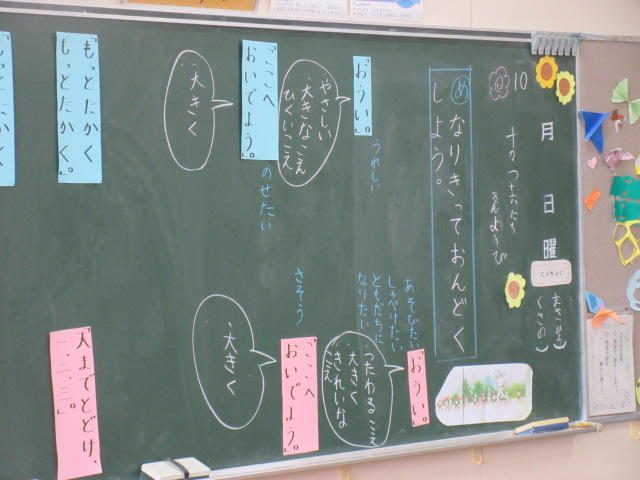 10
月
日
曜
十月 ついたち
きんようび
にっちょく
め なりきっておんどく
しよう。
「おうい。」
やさしい
大きなこえ
ひくいこえ
うれしい
「ここへ
おいでよう。」
・大きく
のせたい
「もっとたかく
もっとたかく。」
「もっとたかく
あそびたい
しゃべりたい
ともだちに
なりたい
「おうい。」
つたわるこえ
大きく
きれいな
こえ
さそう
「ここへ
おいでよう。」
・大きく
「天までとどけ、
一、二、三。」